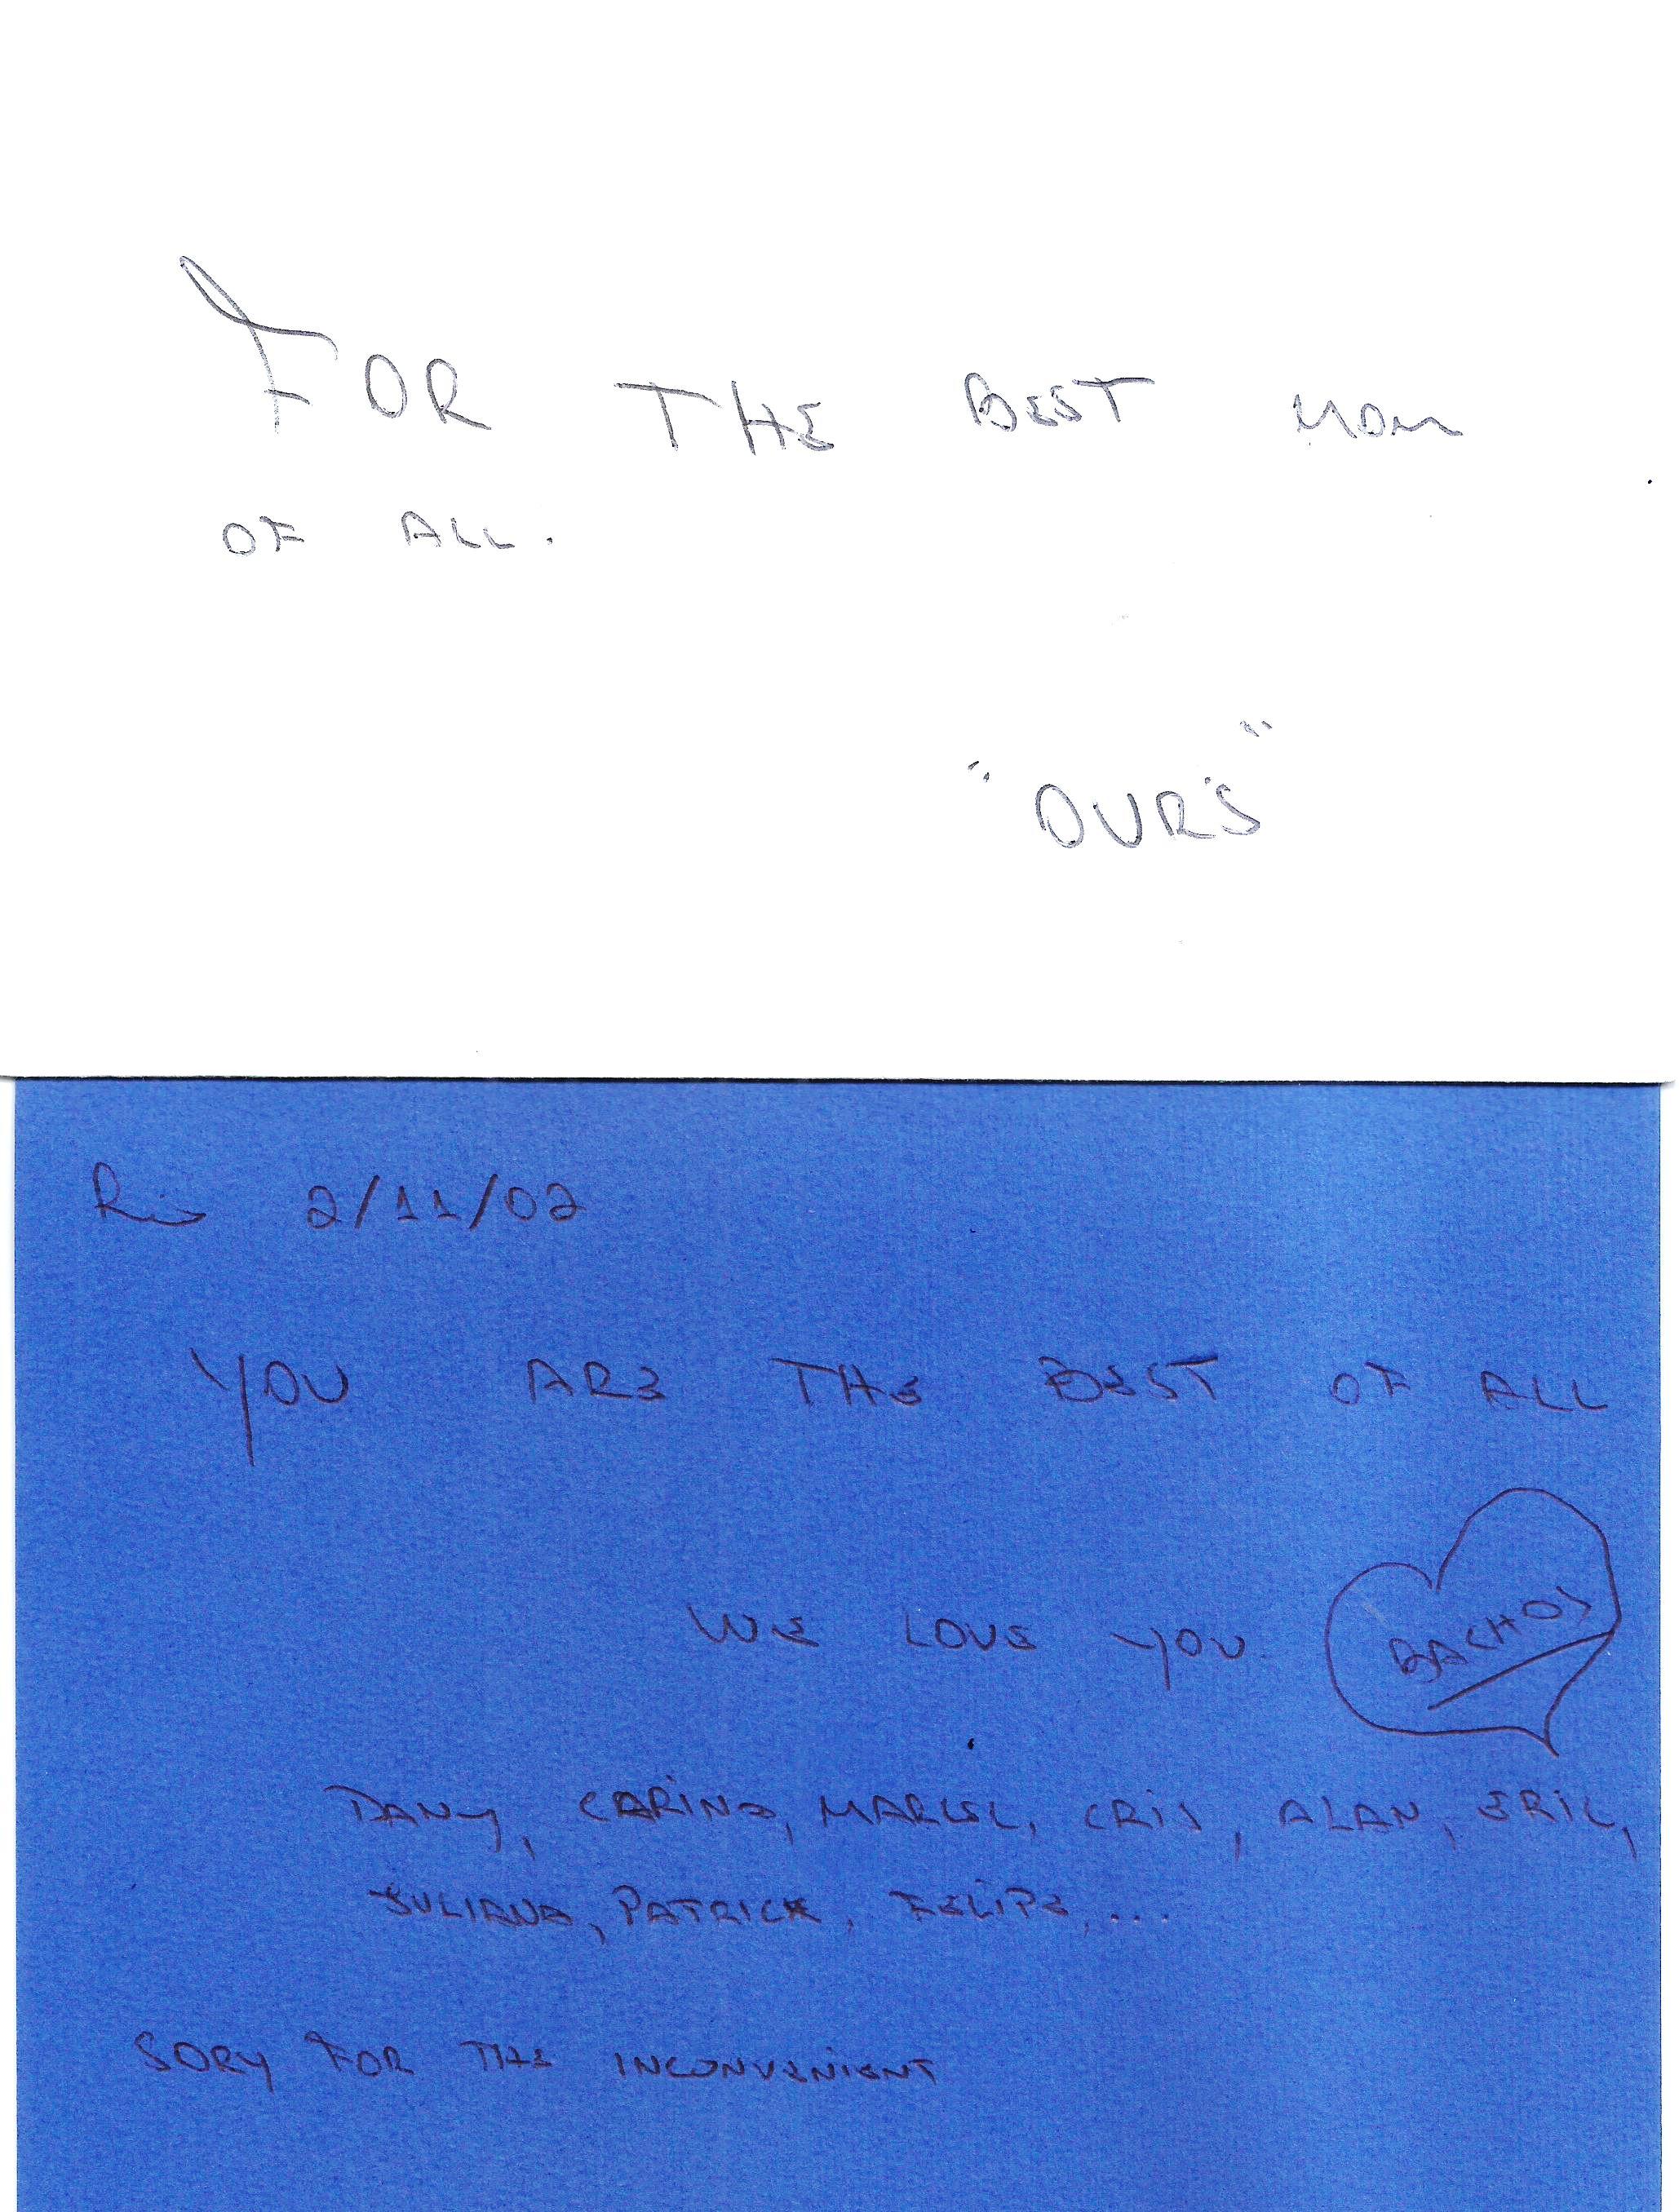 FOR THE BEST MOM
OF ALL.
"OUR'S"
Rio 2/11/02
YOU ARE THE BEST OF ALL
WE LOVE YOU
BACHOS
DANY, CARINA, MARCEL, CRIS, ALAN, ERIC,
JULIANA, PATRICK, FELIPE, ...
SORY FOR THE INCONVENIENT